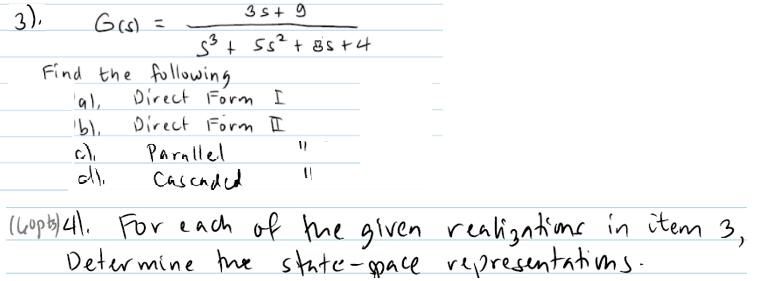 3). G(s) = 3s + 9
s³ + 5s² + 8s + 4
Find the following
a). Direct Form I
b). Direct Form II
c). Parallel "
d). Cascaded "
(60pts) 4). For each of the given realizations in item 3,
Determine the state-space representations.